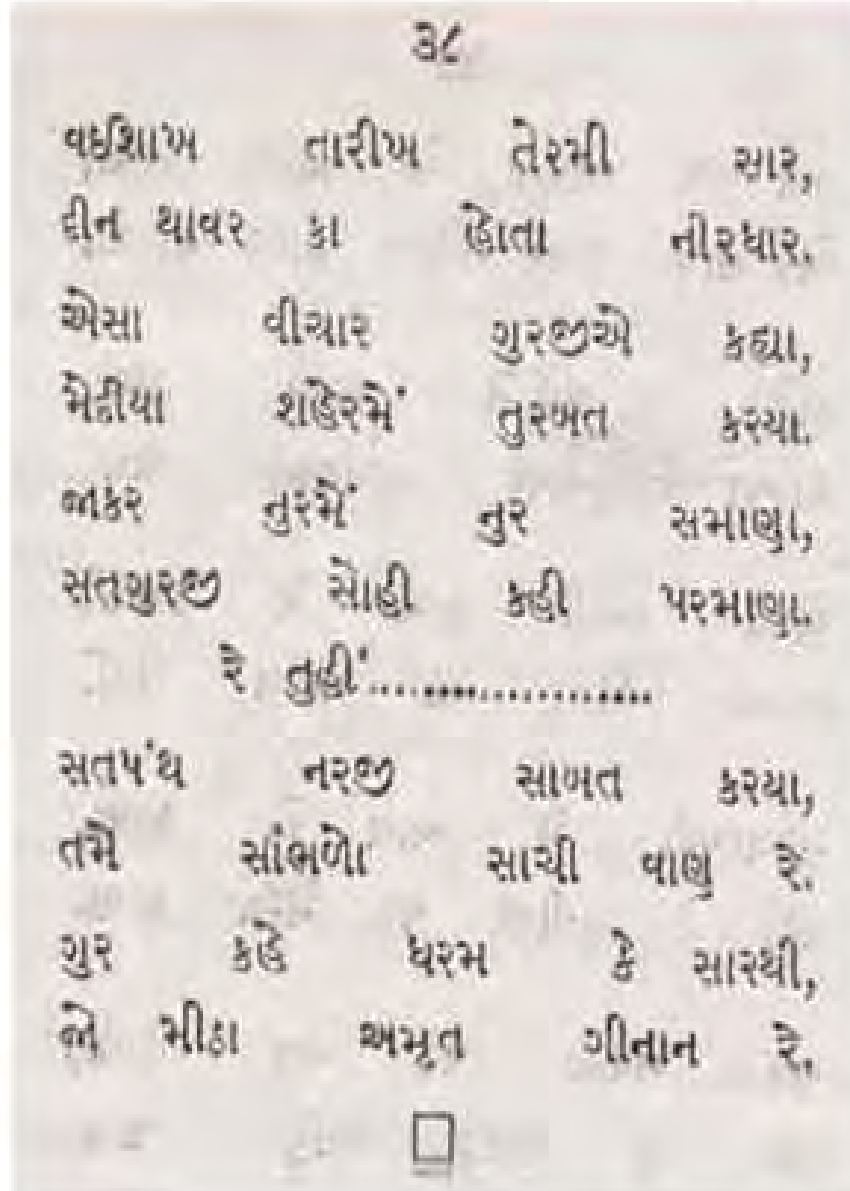 ૩૮
વઈશાખ તારીખ તેરમી સાર,
દીન થાવર કા હોતા નીરધાર.
એસા વીચાર ગુરજીએ કહ્યા,
મેદીયા શહેરમેં તુરબત કરયા.
જાકર નુરમેં નુર સમાણા,
સતગુરજી સોહી કહી પરમાણા.
રે તુહીં......................
સતપંથ નરજી સાબત કરયા,
તમે સાંભળો સાચી વાણ રે.
ગુર કહે ધરમ કે સારથી,
જો મીઠા અમૃત ગીનાન રે.